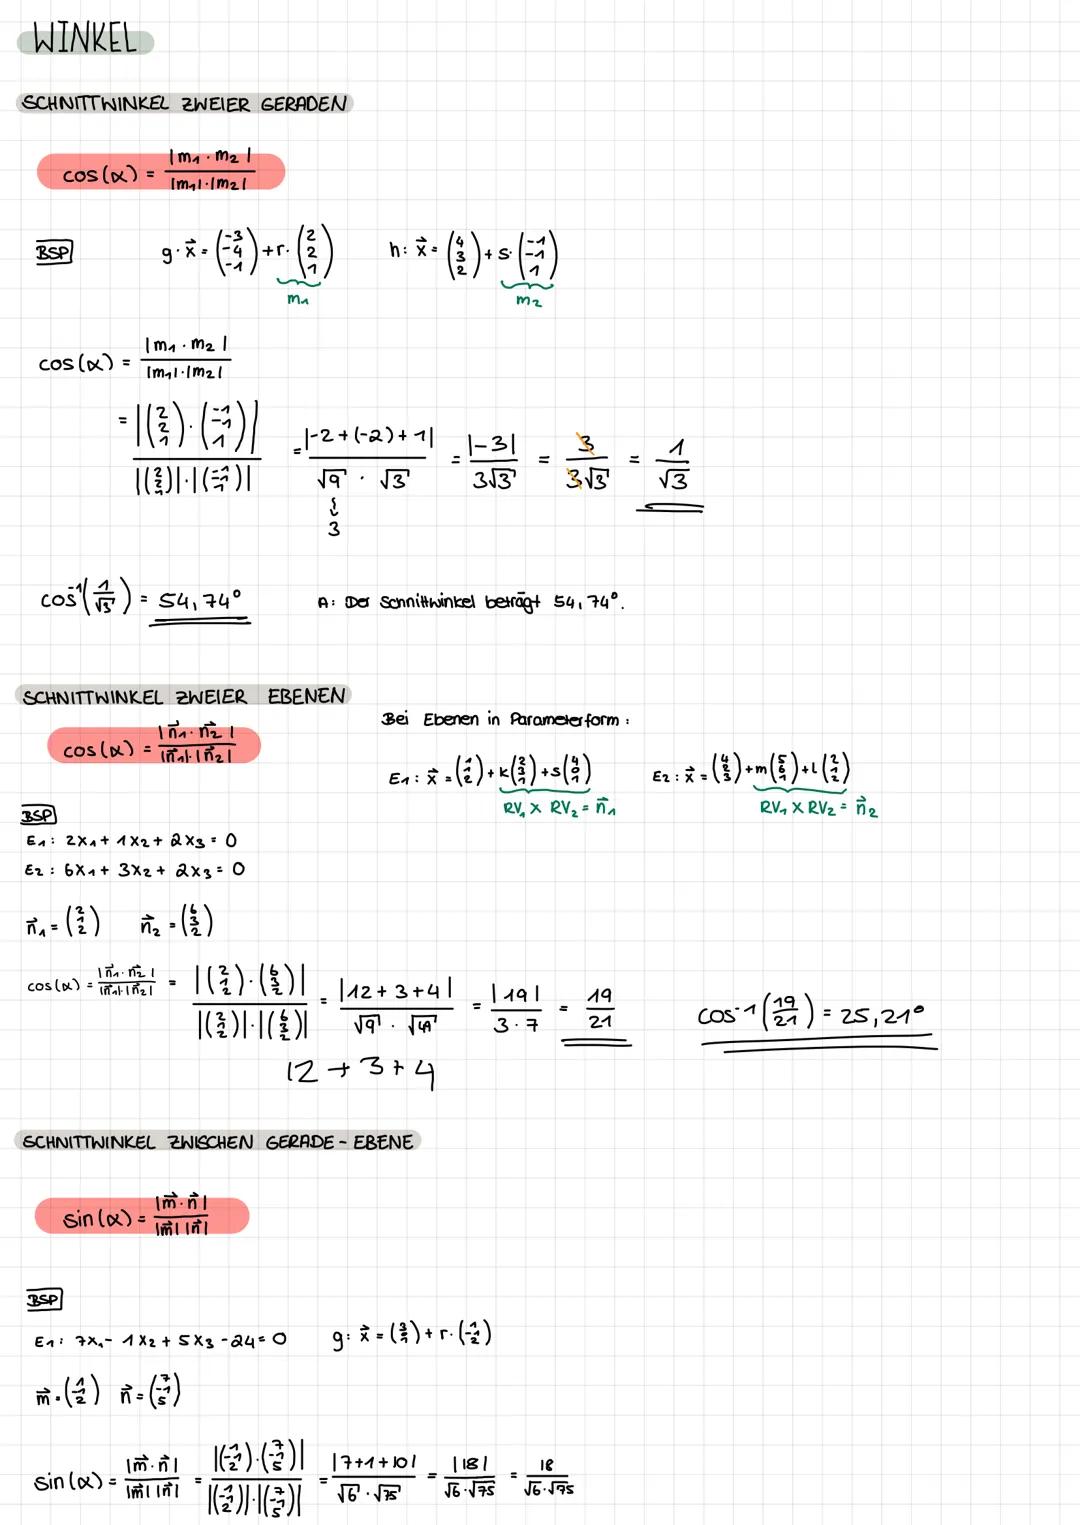 WINKEL
SCHNITTWINKEL ZWEIER GERADEN
cos(α) = |m₁ · m₂| / |m₁|·|m₂|
BSP
g: x⃗ = (-3 -4 -1) + r· (2 2 1)   h: x⃗ = (4 3 2) + s· (-1 -1 1)
m₁   m₂
cos(α) = |m₁ · m₂| / |m₁|·|m₂|
= |(2 2 1) · (-1 -1 1)| / |(2 2 1)|·|(-1 -1 1)| = |-2+(-2)+1| / √9 · √3 = |-3| / 3√3 = 3 / 3√3 = 1 / √3
3
cos⁻¹(1/√3) = 54,74°   A: Der Schnittwinkel beträgt 54,74°.
SCHNITTWINKEL ZWEIER EBENEN
cos(α) = |n⃗₁ · n⃗₂| / |n⃗₁|·|n⃗₂|
Bei Ebenen in Parameterform:
E₁: x⃗ = (1 2 2) + k(2 3 1) + s(4 0 1)   E₂: x⃗ = (4 2 3) + m(5 6 1) + l(2 1 2)
RV₁ X RV₂ = n⃗₁   RV₁ X RV₂ = n⃗₂
BSP
E₁: 2x₁ + 1x₂ + 2x₃ = 0
E₂: 6x₁ + 3x₂ + 2x₃ = 0
n⃗₁ = (2 1 2)   n⃗₂ = (6 3 2)
cos(α) = |n⃗₁ · n⃗₂| / |n⃗₁|·|n⃗₂| = |(2 1 2) · (6 3 2)| / |(2 1 2)|·|(6 3 2)| = |12+3+4| / √9 · √49 = |19| / 3·7 = 19 / 21   cos⁻¹(19/21) = 25,21°
12 + 3 + 4
SCHNITTWINKEL ZWISCHEN GERADE - EBENE
sin(α) = |m⃗ · n⃗| / |m⃗| |n⃗|
BSP
E₁: 7x₁ - 1x₂ + 5x₃ - 24 = 0   g: x⃗ = (3 3 1) + r· (1 -1 2)
m⃗ = (1 -1 2)   n⃗ = (7 -1 5)
sin(α) = |m⃗ · n⃗| / |m⃗| |n⃗| = |(1 -1 2) · (7 -1 5)| / |(1 -1 2)|·|(7 -1 5)| = |7+1+10| / √6 · √75 = |18| / √6·√75 = 18 / √6·√75